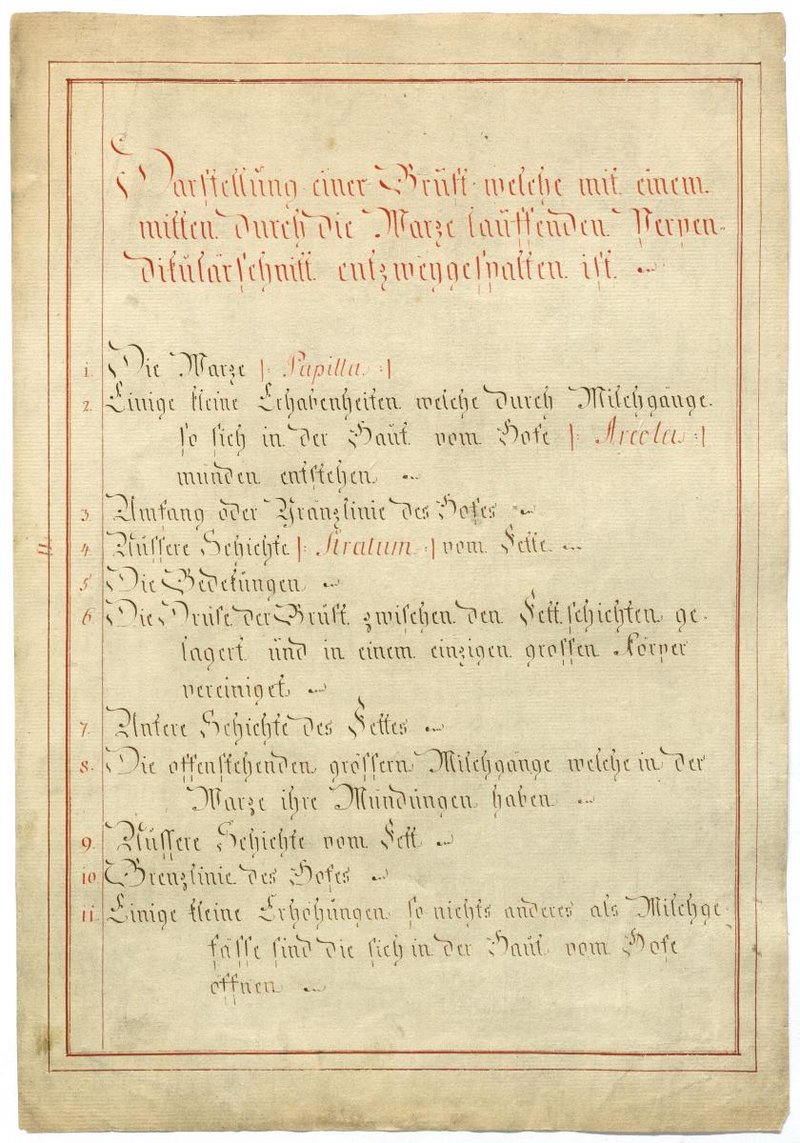 Darstellung einer Brüst welche mit einem
mitten durch die Warze lauffenden Perpen-
dikülärschnitt entzweygespalten ist.
1. Die Warze |: Papilla :|
2. Einige kleine Erhabenheiten welche durch Milchgänge
so sich in der Haut vom Hofe |: Areola :|
münden entstehen
3. Umfang oder Gränzlinie des Hofes
4. Aüssere Schichte |: Stratum :| vom Fette
5 Die Bedekungen
6 Die Drüse der Brüst zwischen den Fettschichten ge-
lagert und in einem einzigen grossen Körper
vereiniget
7. Untere Schichte des Fettes
8. Die offenstehenden grössern Milchgänge welche in der
Warze ihre Mündungen haben
9. Aüssere Schichte vom Fett
10 Grenzlinie des Hofes
11. Einige kleine Erhöhungen so nichts anderes als Milchge-
fässe sind die sich in der Haut vom Hofe
öffnen